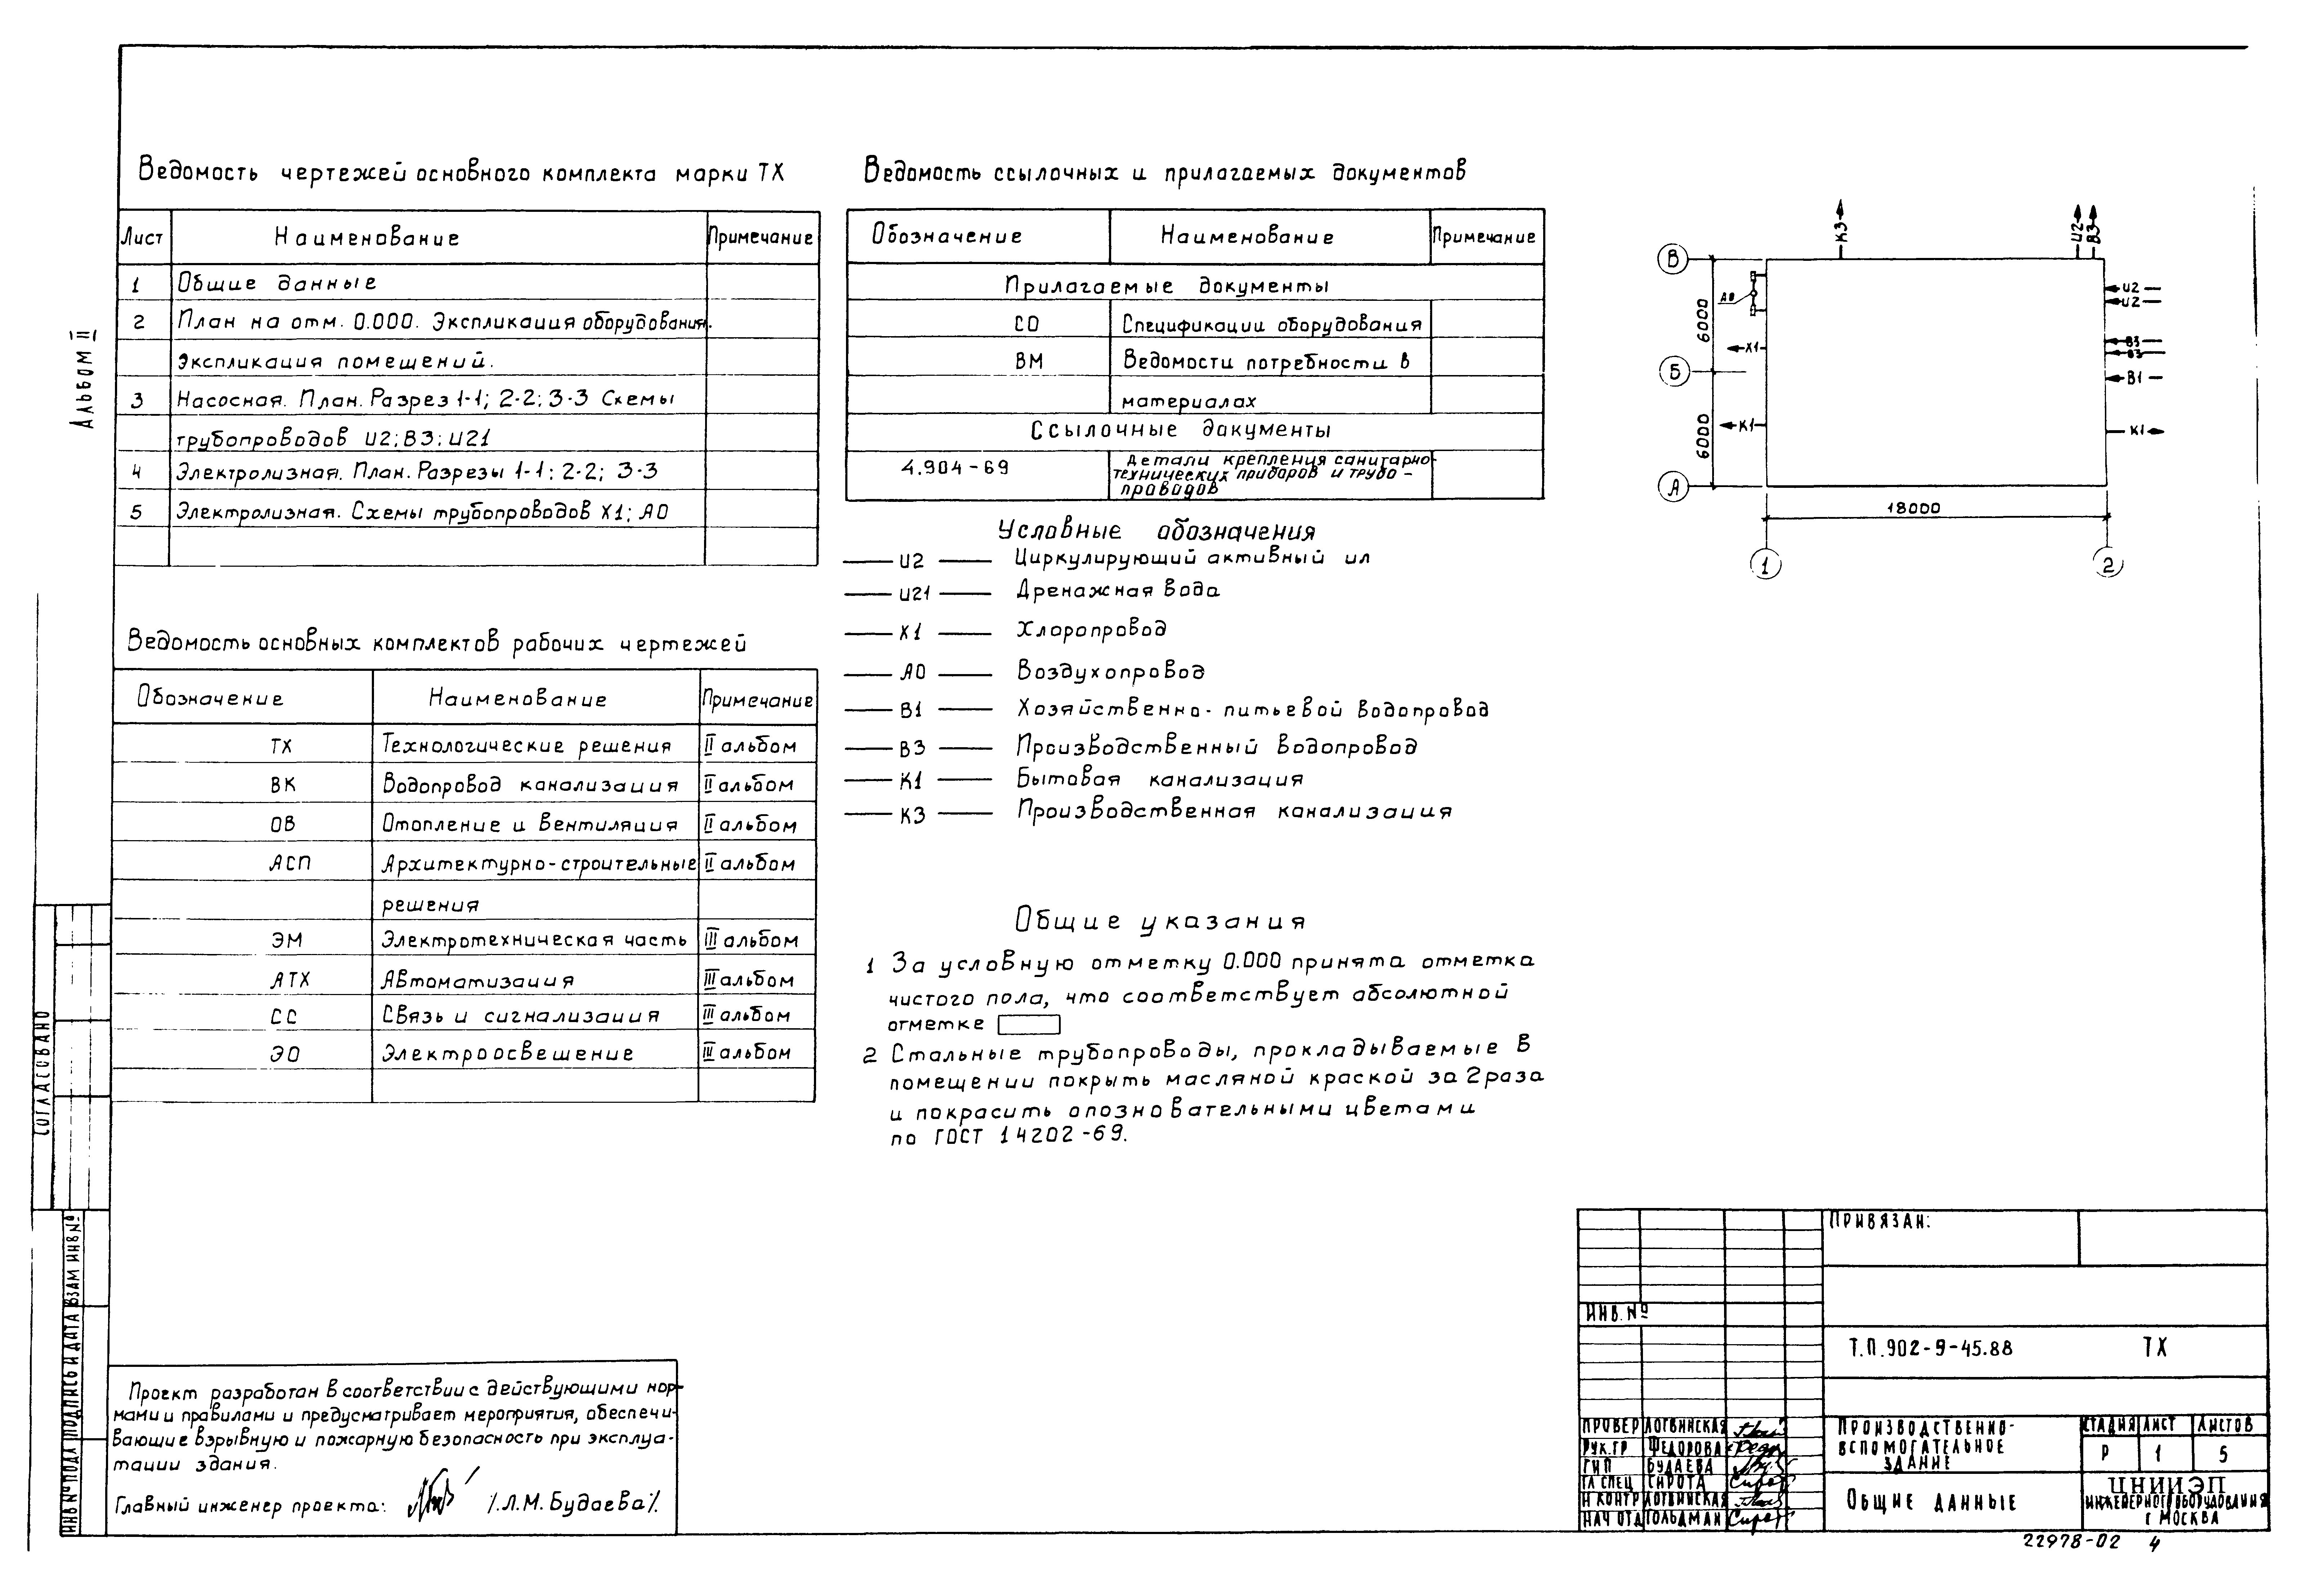 Альбом II
Ведомость чертежей основного комплекта марки ТХ
Лист Наименование Примечание
1 Общие данные
2 План на отм. 0.000. Экспликация оборудования.
Экспликация помещений.
3 Насосная. План. Разрез 1-1; 2-2; 3-3 Схемы
трубопроводов И2; В3; И21
4 Электролизная. План. Разрезы 1-1; 2-2; 3-3
5 Электролизная. Схемы трубопроводов Х1; А0
Ведомость основных комплектов рабочих чертежей
Обозначение Наименование Примечание
ТХ Технологические решения II альбом
ВК Водопровод канализация II альбом
ОВ Отопление и вентиляция II альбом
АСП Архитектурно-строительные II альбом
решения
ЭМ Электротехническая часть III альбом
АТХ Автоматизация III альбом
СС Связь и сигнализация III альбом
ЭО Электроосвещение III альбом
Ведомость ссылочных и прилагаемых документов
Обозначение Наименование Примечание
Прилагаемые документы
СО Спецификации оборудования
ВМ Ведомости потребности в
материалах
Ссылочные документы
4.904-69 Детали крепления санитарно-
технических приборов и трубо-
проводов
Условные обозначения
И2 Циркулирующий активный ил
И21 Дренажная вода
Х1 Хлоропровод
А0 Воздухопровод
В1 Хозяйственно-питьевой водопровод
В3 Производственный водопровод
К1 Бытовая канализация
К3 Производственная канализация
Общие указания
1 За условную отметку 0.000 принята отметка
чистого пола, что соответствует абсолютной
отметке
2 Стальные трубопроводы, прокладываемые в
помещении покрыть масляной краской за 2 раза
и покрасить опозновательными цветами
по ГОСТ 14202-69.
К3 И2 В3
В
А0
И2
И2
6000
В3
В3
Х1
Б
В1
6000
К1
К1
А
18000
1 2
СОГЛАСОВАНО
ИНВ № ПОДЛ ПОДПИСЬ И ДАТА ВЗАМ ИНВ №
Проект разработан в соответствии с действующими нор-
мами и правилами и предусматривает мероприятия, обеспечи-
вающие взрывную и пожарную безопасность при эксплуа-
тации здания.
Главный инженер проекта: /.Л.М. Будаева/.
ПРИВЯЗАН:
ИНВ. №
Т.П. 902-9-45.88 ТХ
ПРОВЕР ЛОГВИНСКАЯ
РУК.ГР ФЕДОРОВА
ГИП БУДАЕВА
ГЛ СПЕЦ СИРОТА
Н КОНТР ЛОГВИНСКАЯ
НАЧ ОТД ГОЛЬДМАН
ПРОИЗВОДСТВЕННО-
ВСПОМОГАТЕЛЬНОЕ
ЗДАНИЕ
СТАДИЯ ЛИСТ ЛИСТОВ
Р 1 5
ОБЩИЕ ДАННЫЕ
ЦНИИЭП
ИНЖЕНЕРНОГО ОБОРУДОВАНИЯ
г МОСКВА
22978-02 4